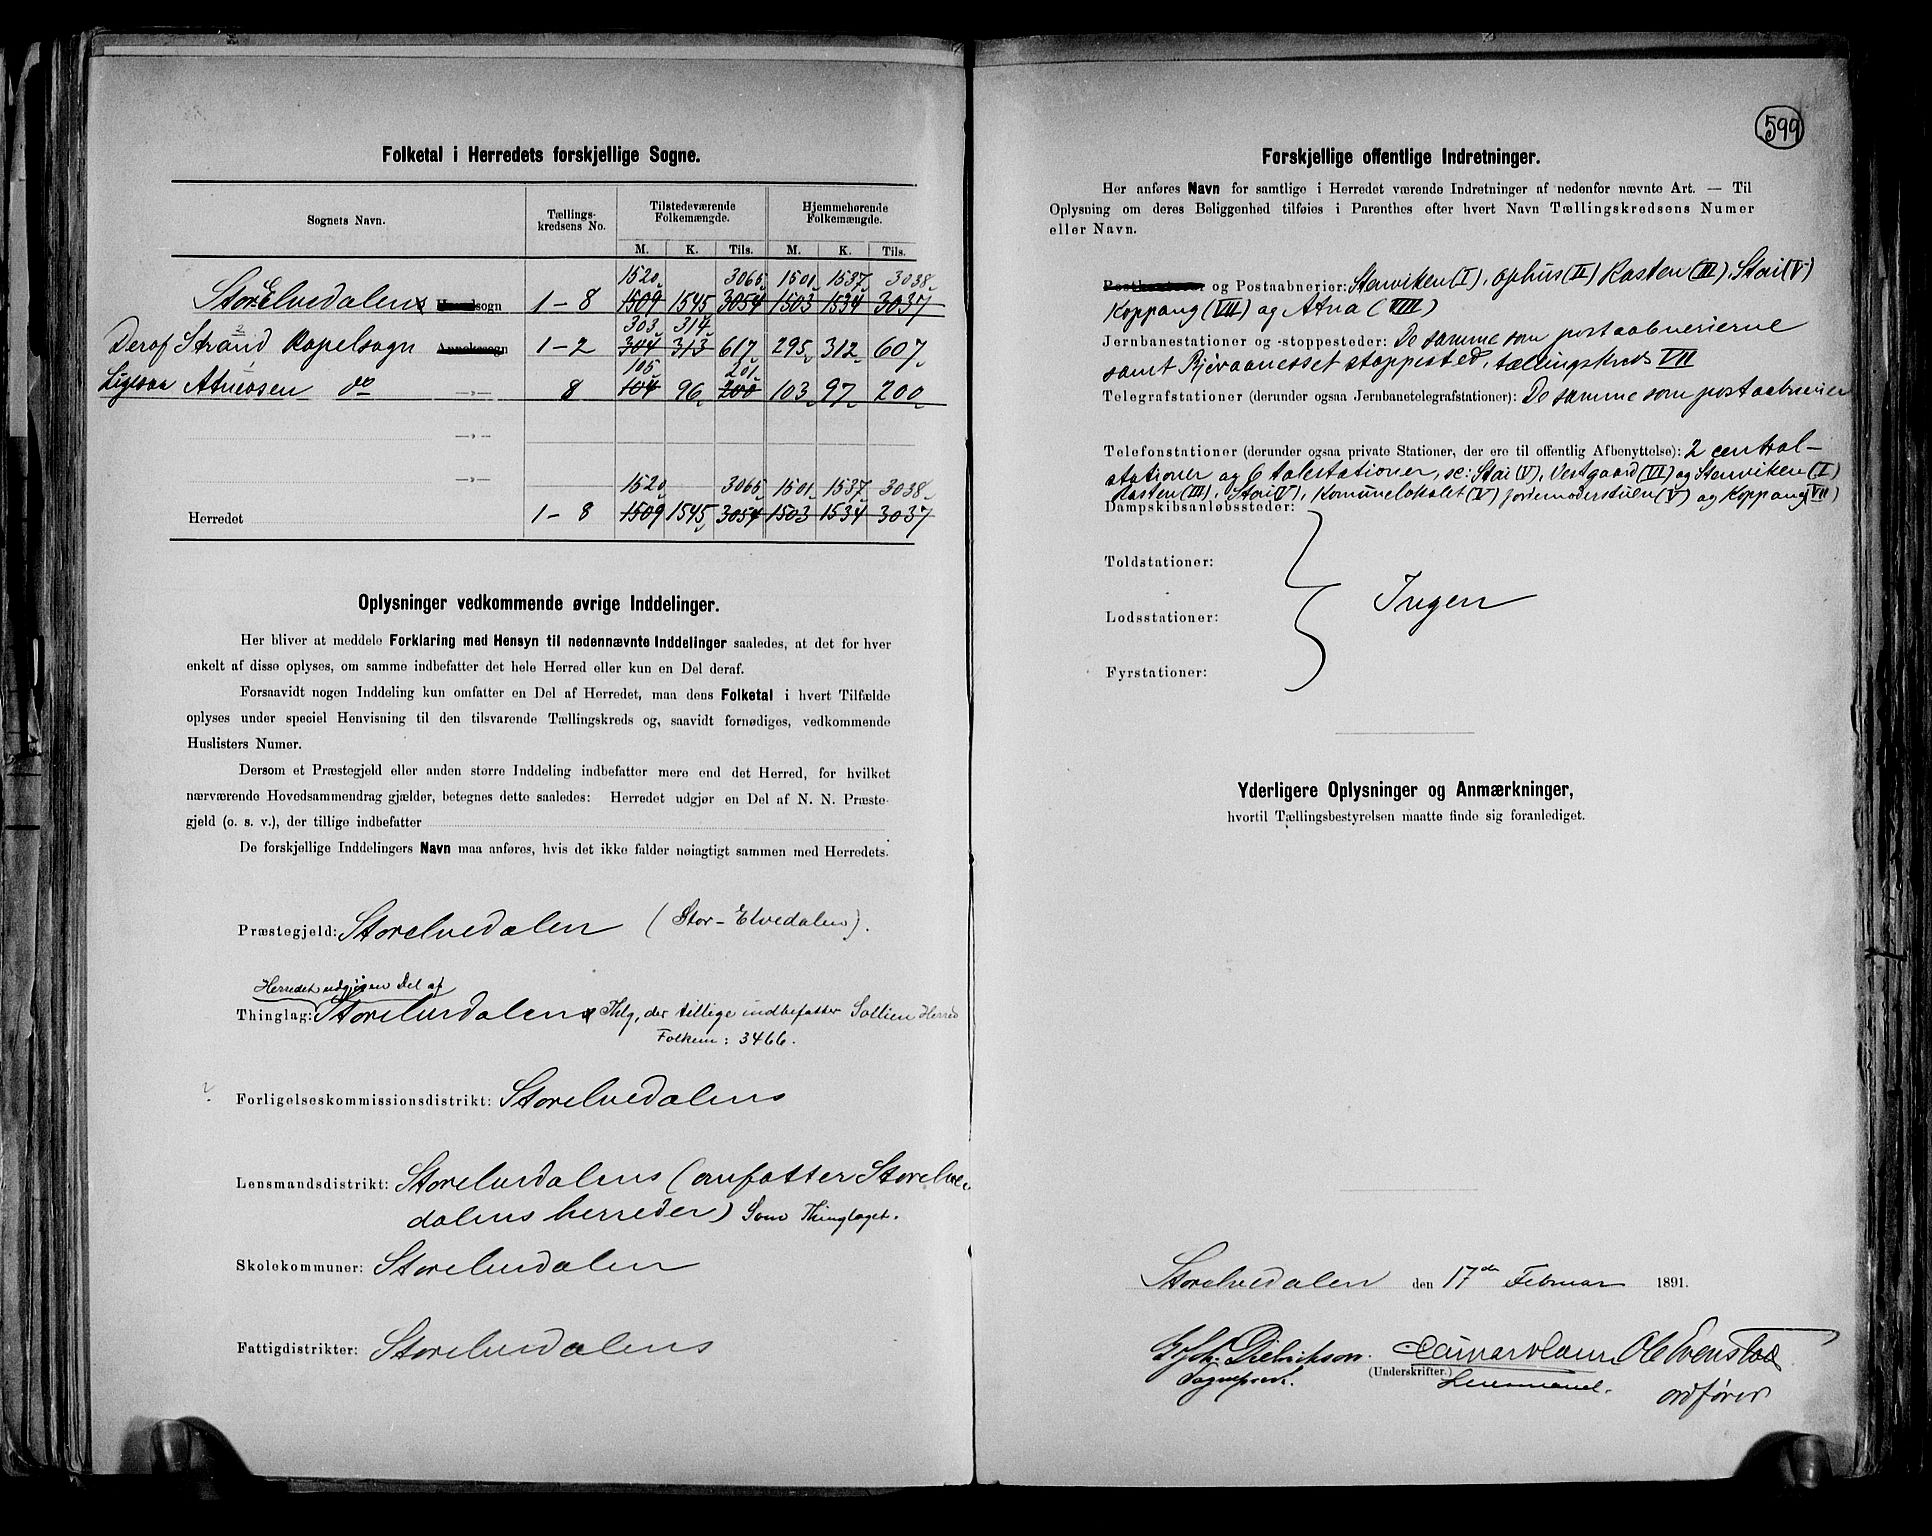 Folketal i Herredets forskjellige Sogne.
Sognets Navn. Tællings-kredsens No. Tilstedeværende Folkemængde. Hjemmehørende Folkemængde.
M. K. Tils. M. K. Tils.
1520 3065 1501 1537 3038
StorElvedalens Hovedsogn 1-8 1509 1545 3054 1503 1534 3037
303 314
Deraf Strand Kapelsogn Annekssogn 1-2 304 313 617 295 312 607
105 201
Ligesaa Atneosen do -„- 8 104 96 200 103 97 200
-„-
-„-
1520 3065 1501 1537 3038
Herredet 1-8 1509 1545 3054 1503 1534 3037
Oplysninger vedkommende øvrige Inddelinger.
Her bliver at meddele Forklaring med Hensyn til nedennævnte Inddelinger saaledes, at det for hver
enkelt af disse oplyses, om samme indbefatter det hele Herred eller kun en Del deraf.
Forsaavidt nogen Inddeling kun omfatter en Del af Herredet, maa dens Folketal i hvert Tilfælde
oplyses under speciel Henvisning til den tilsvarende Tællingskreds og, saavidt fornødiges, vedkommende
Huslisters Numer.
Dersom et Præstegjeld eller anden større Inddeling indbefatter mere end det Herred, for hvilket
nærværende Hovedsammendrag gjælder, betegnes dette saaledes: Herredet udgjør en Del af N. N. Præste-
gjeld (o. s. v.), der tillige indbefatter
De forskjellige Inddelingers Navn maa anføres, hvis det ikke falder nøiagtigt sammen med Herredets.
Præstegjeld: Storelvedalen (Stor-Elvedalen).
Herredet udgjør en Del af
Thinglag: Storelvedalens Thlg, der tillige indbefatter Sollien Herred
Folkem: 3466.
Forligelseskommissionsdistrikt: Storelvedalens
Lensmandsdistrikt: Storelvedalens (omfatter Storelve-
dalens herreder) Som Thinglaget.
Skolekommuner: Storelvedalen
Fattigdistrikter: Storelvedalens
599
Forskjellige offentlige Indretninger.
Her anføres Navn for samtlige i Herredet værende Indretninger af nedenfor nævnte Art. — Til
Oplysning om deres Beliggenhed tilføies i Parenthes efter hvert Navn Tællingskredsens Numer
eller Navn.
Postkontorer og Postaabnerier: Stenviken (I), Ophus (II) Rasten (III), Stai (V)
Koppang (VII) og Atna (VIII)
Jernbanestationer og -stoppesteder: De samme som postaabnerierne
samt Bjøraanesset stoppested, tællingskreds VII
Telegrafstationer (derunder ogsaa Jernbanetelegrafstationer): De samme som postaabnerier
Telefonstationer (derunder ogsaa private Stationer, der ere til offentlig Afbenyttelse): 2 central-
stationer og 6 talestationer, sc: Stai (V), Vestgaard (VI) og Stenviken (I)
Rasten (III), Stai (V), Komunelokalet (V) jordemoderstuen (V) og Koppang (VII)
Dampskibsanløbssteder:
Toldstationer:
Ingen
Lodsstationer:
Fyrstationer:
Yderligere Oplysninger og Anmærkninger,
hvortil Tællingsbestyrelsen maatte finde sig foranlediget.
Storelvedalen den 17de Februar 1891.
Dietrichson. Ole Evenstad
(Underskrifter.)
Sogneprest. Lensmand. ordfører